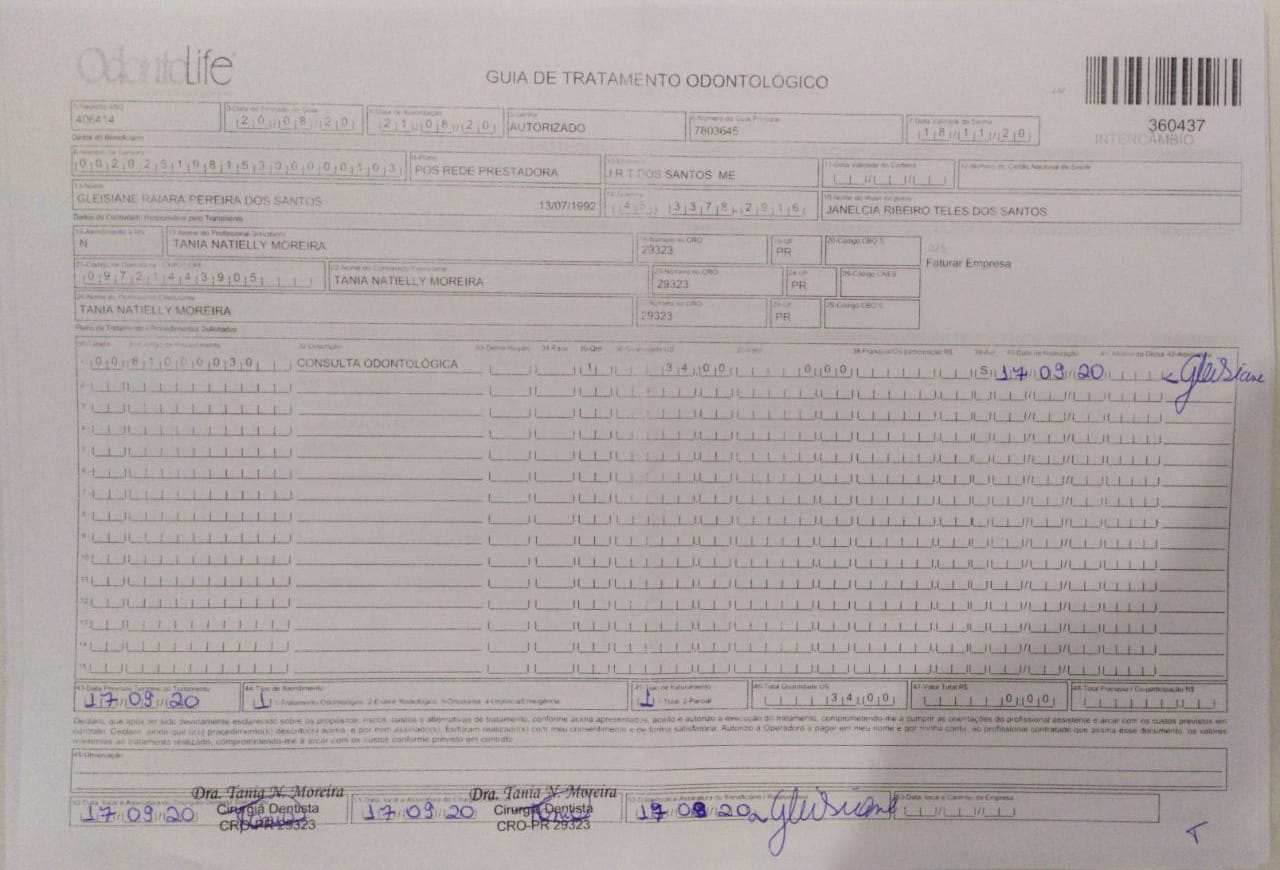 OdontoLife
GUIA DE TRATAMENTO ODONTOLÓGICO
360437
INTERCÂMBIO
1-Registro ANS
406414
20/08/20
4-Data de Autorização
21/08/20
5-Senha
AUTORIZADO
6-Número da Guia Principal
7803645
7-Data Validade da Senha
18/11/20
Dados do Beneficiário
00202519815300000103
9-Plano
POS REDE PRESTADORA
J R T DOS SANTOS ME
11-Data Validade da Carteira
12-Número do Cartão Nacional de Saúde
13-Nome
GLEISIANE RAIARA PEREIRA DOS SANTOS
13/07/1992
14-Telefone
(45) 3378-2916
JANELCIA RIBEIRO TELES DOS SANTOS
Dados do Contratado Responsável pelo Tratamento
16-Atendimento a RN
N
17-Nome do Profissional Solicitante
TANIA NATIELLY MOREIRA
18-Número no CRO
29323
19-UF
PR
20-Código CBO S
025-
Faturar Empresa
09721443905
22-Nome do Contratado Executante
TANIA NATIELLY MOREIRA
23-Número no CRO
29323
24-UF
PR
25-Código CNES
26-Nome do Profissional Executante
TANIA NATIELLY MOREIRA
27-Número no CRO
29323
28-UF
PR
29-Código CBO S
Plano de Tratamento / Procedimentos Solicitados
30-Tabela
32-Descrição
33-Dente/Região
34-Face
35-Qtd
38-Franquia/Co-participação R$
39-Aut
40-Data de Realização
0081000030 CONSULTA ODONTOLÓGICA 1 34,00 0,00 S 17/09/20 Gleisiane
2-
3-
4-
5-
6-
7-
8-
9-
10-
11-
12-
13-
14-
15-
43-Data Prevista Término do Tratamento
17/09/20
44-Tipo de Atendimento
1 1-Tratamento Odontológico 2-Exame Radiológico 3-Ortodontia 4-Urgência/Emergência
45-Tipo de Faturamento
1 1-Total 2-Parcial
46-Total Quantidade US
34,00
47-Valor Total R$
0,00
48-Total Franquia / Co-participação R$
Declaro, que após ter sido devidamente esclarecido sobre os propósitos, riscos, custos e alternativas de tratamento, conforme acima apresentados, aceito e autorizo a execução do tratamento, comprometendo-me a cumprir as orientações do profissional assistente e arcar com os custos previstos em
contrato. Declaro, ainda que o(s) procedimento(s) descrito(s) acima, e por mim assinado(s), foi/foram realizado(s) com meu consentimento e de forma satisfatória. Autorizo a Operadora a pagar em meu nome e por minha conta, ao profissional contratado que assina esse documento, os valores
referentes ao tratamento realizado, comprometendo-me a arcar com os custos conforme previsto em contrato.
49-Observação
17/09/20
Dra. Tania N. Moreira
Cirurgiã Dentista
CRO-PR 29323
17/09/20
Dra. Tania N. Moreira
Cirurgiã Dentista
CRO-PR 29323
17/09/20 Gleisiane
53-Data, local e Carimbo da Empresa